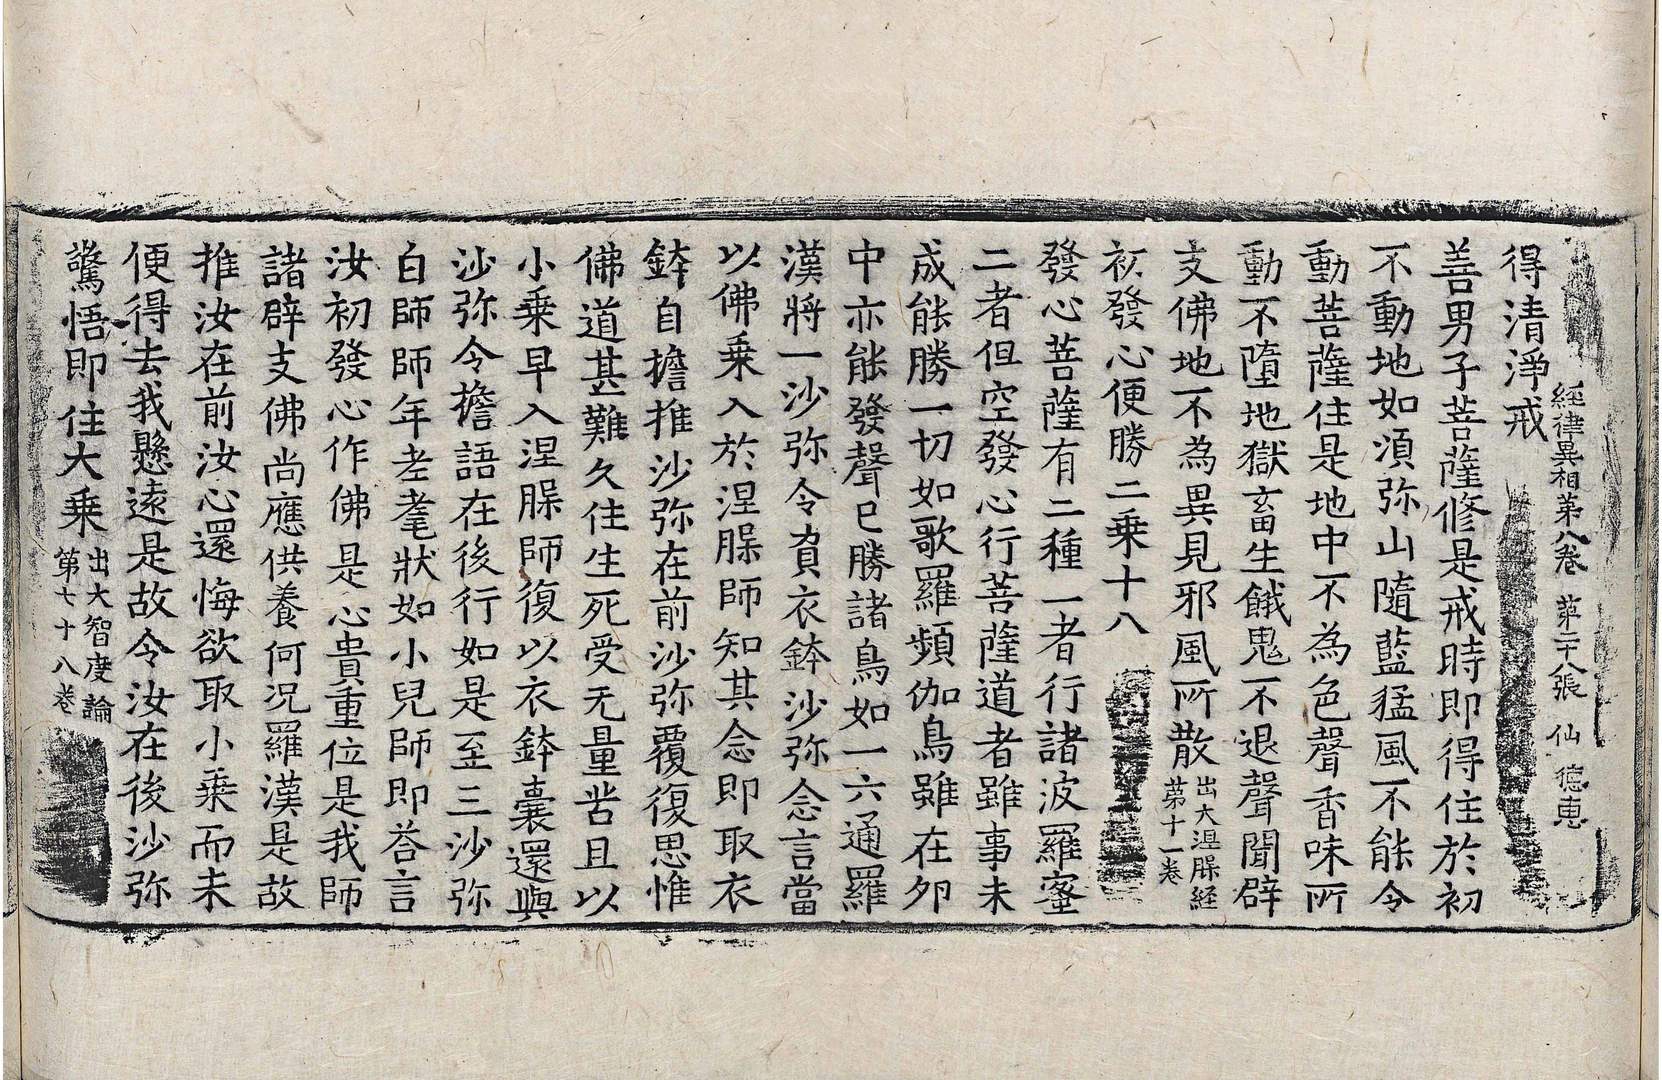 經律異相第八卷 第二十八張 仙 德惠
得清淨戒
善男子菩薩修是戒時即得住於初
不動地如湏弥山隨藍猛風不能令
動菩薩住是地中不為色聲香味所
動不墮地獄畜生餓鬼不退聲聞辟
支佛地不為異見邪風所散出大涅槃經
第十一卷
初發心便勝二乗十八
發心菩薩有二種一者行諸波羅蜜
二者但空發心行菩薩道者雖事未
成能勝一切如歌羅頻伽鳥雖在夘
中亦能發聲已勝諸鳥如一六通羅
漢將一沙弥令負衣鉢沙弥念言當
以佛乗入於涅槃師知其念即取衣
鉢自擔推沙弥在前沙弥覆復思惟
佛道甚難久住生死受无量苦且以
小乗早入涅槃師復以衣鉢囊還與
沙弥令擔語在後行如是至三沙弥
白師師年老耄狀如小兒師即荅言
汝初發心作佛是心貴重位是我師
諸辟支佛尚應供養何况羅漢是故
推汝在前汝心還悔欲取小乗而未
便得去我懸遠是故令汝在後沙弥
驚悟即住大乗出大智度論
第七十八卷